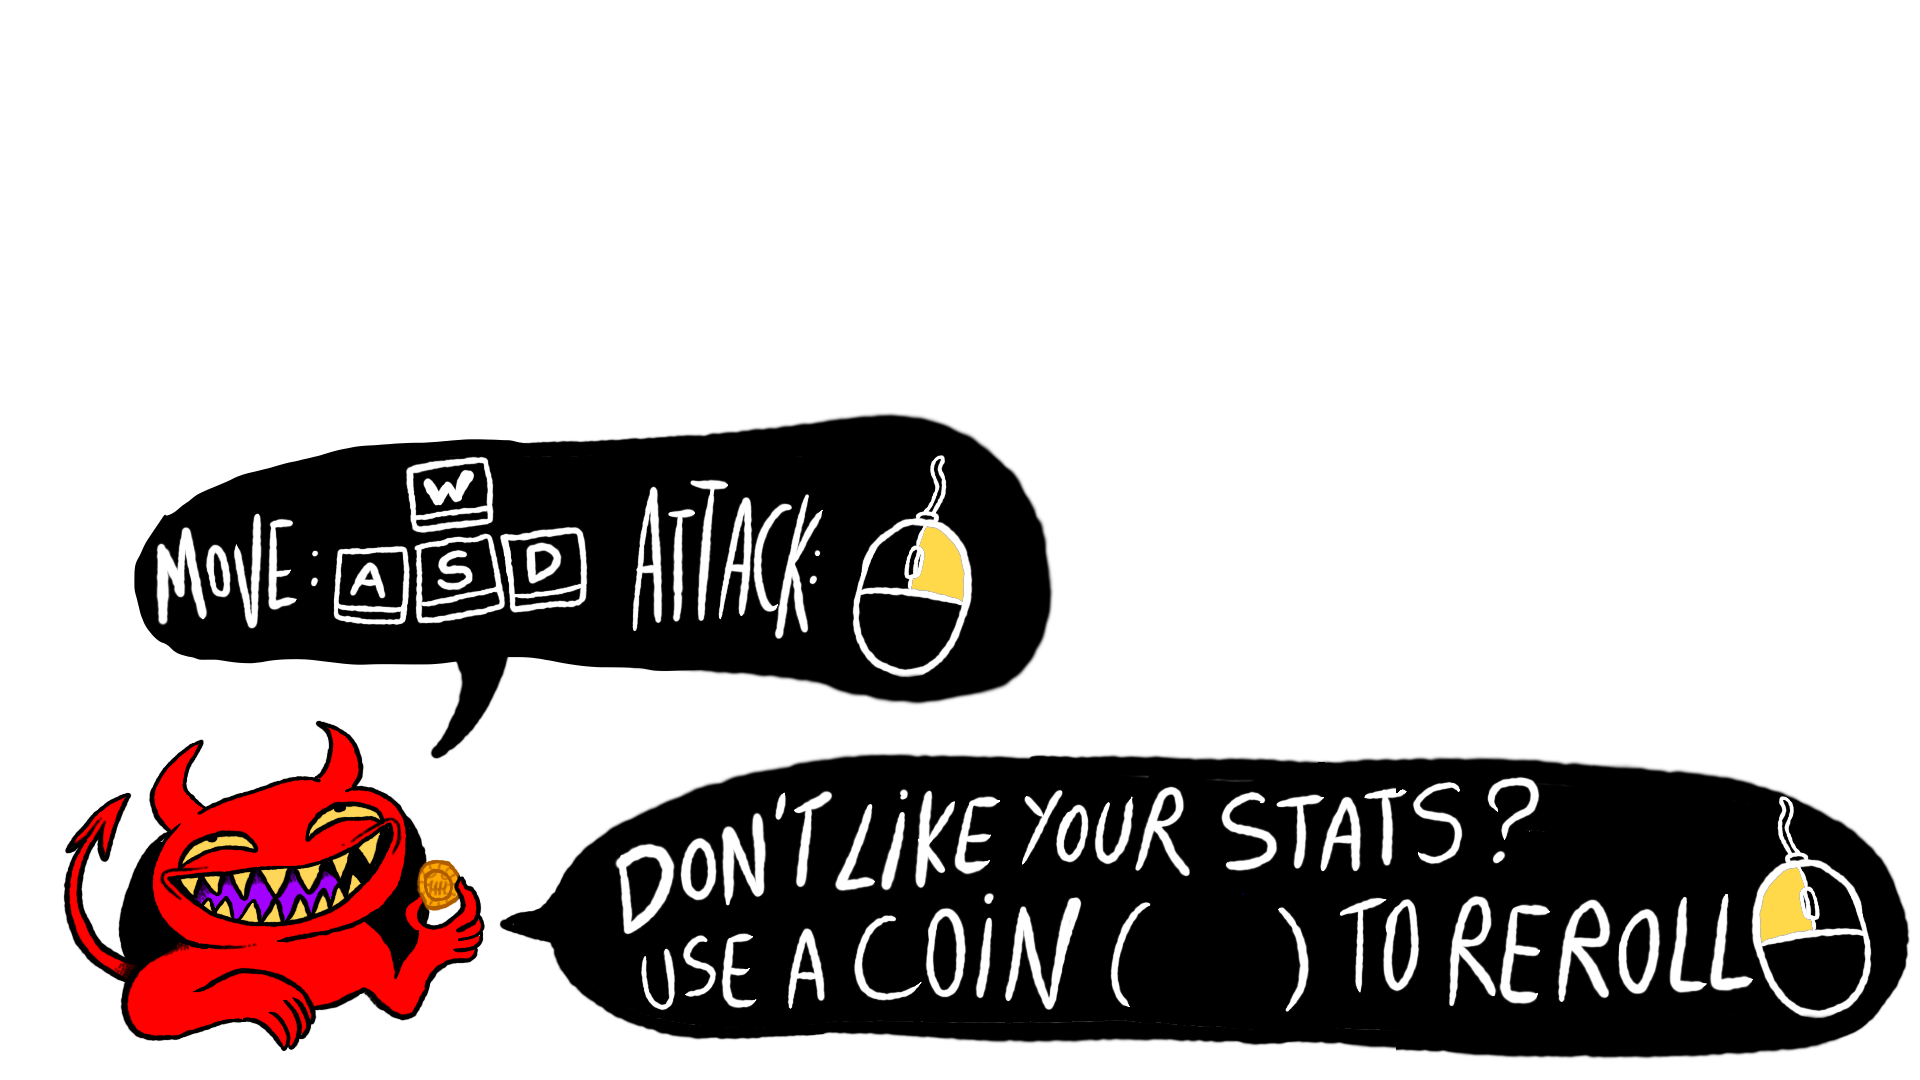 W
MOVE: A S D ATTACK:
DON'T LiKE YOUR STATS?
USE A COiN ( ) TO REROLL